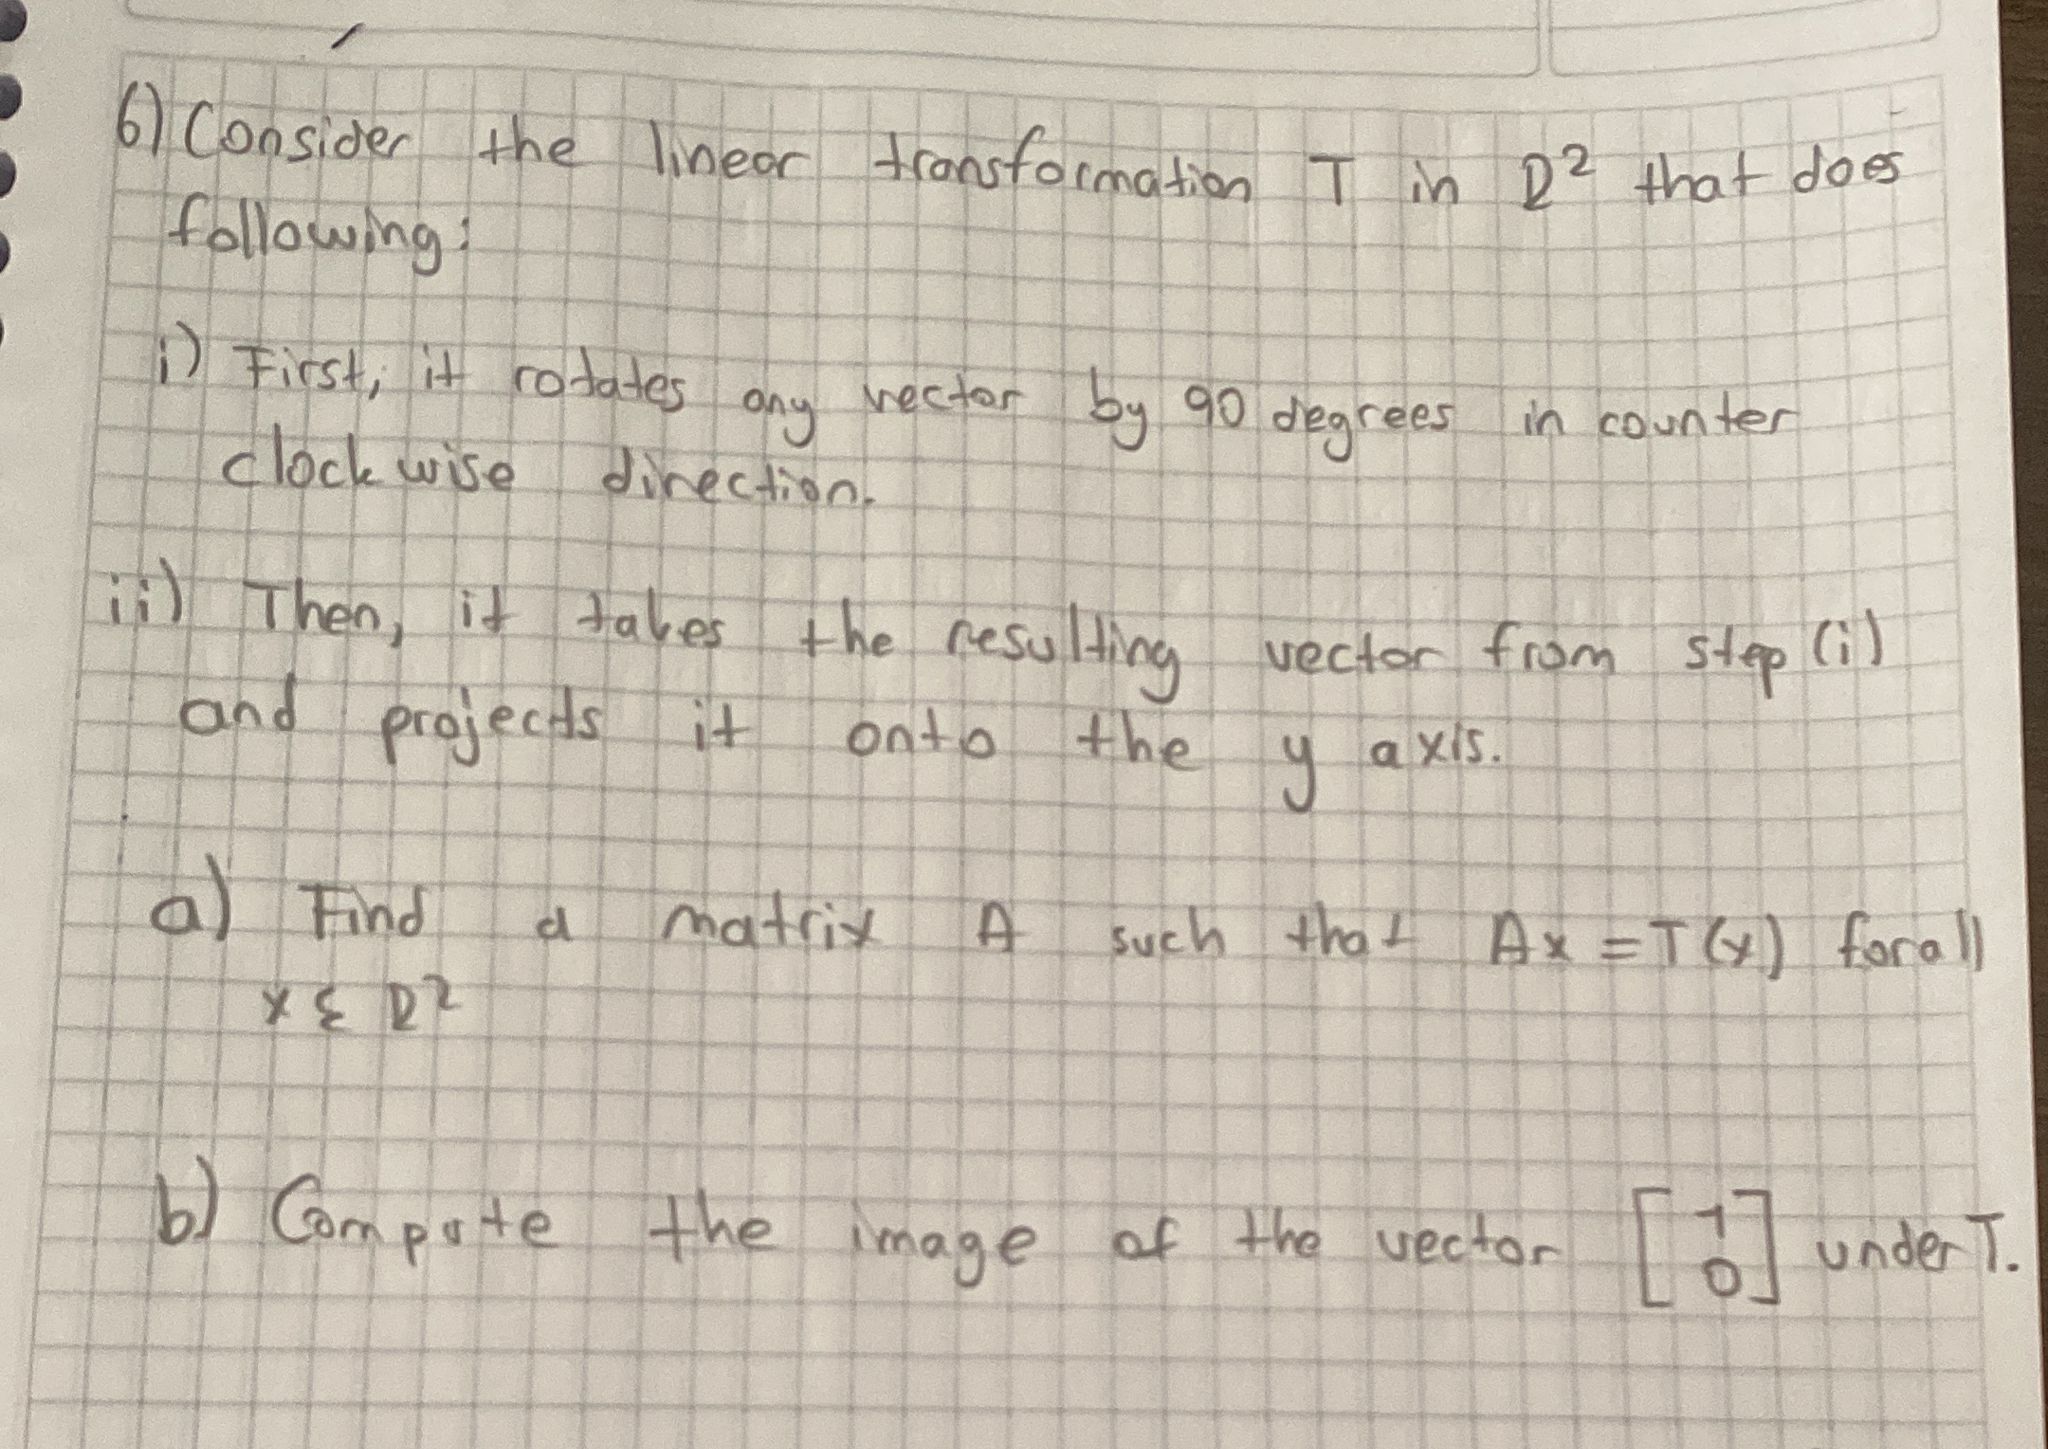 6) Consider the linear transformation T in R² that does
following:
i) First, it rotates any vector by 90 degrees in counter
clockwise direction.
ii) Then, it takes the resulting vector from step (i)
and projects it onto the y axis.
a) Find a matrix A such that Ax = T(x) for all
x ∈ R²
b) Compute the image of the vector [1 0] under T.